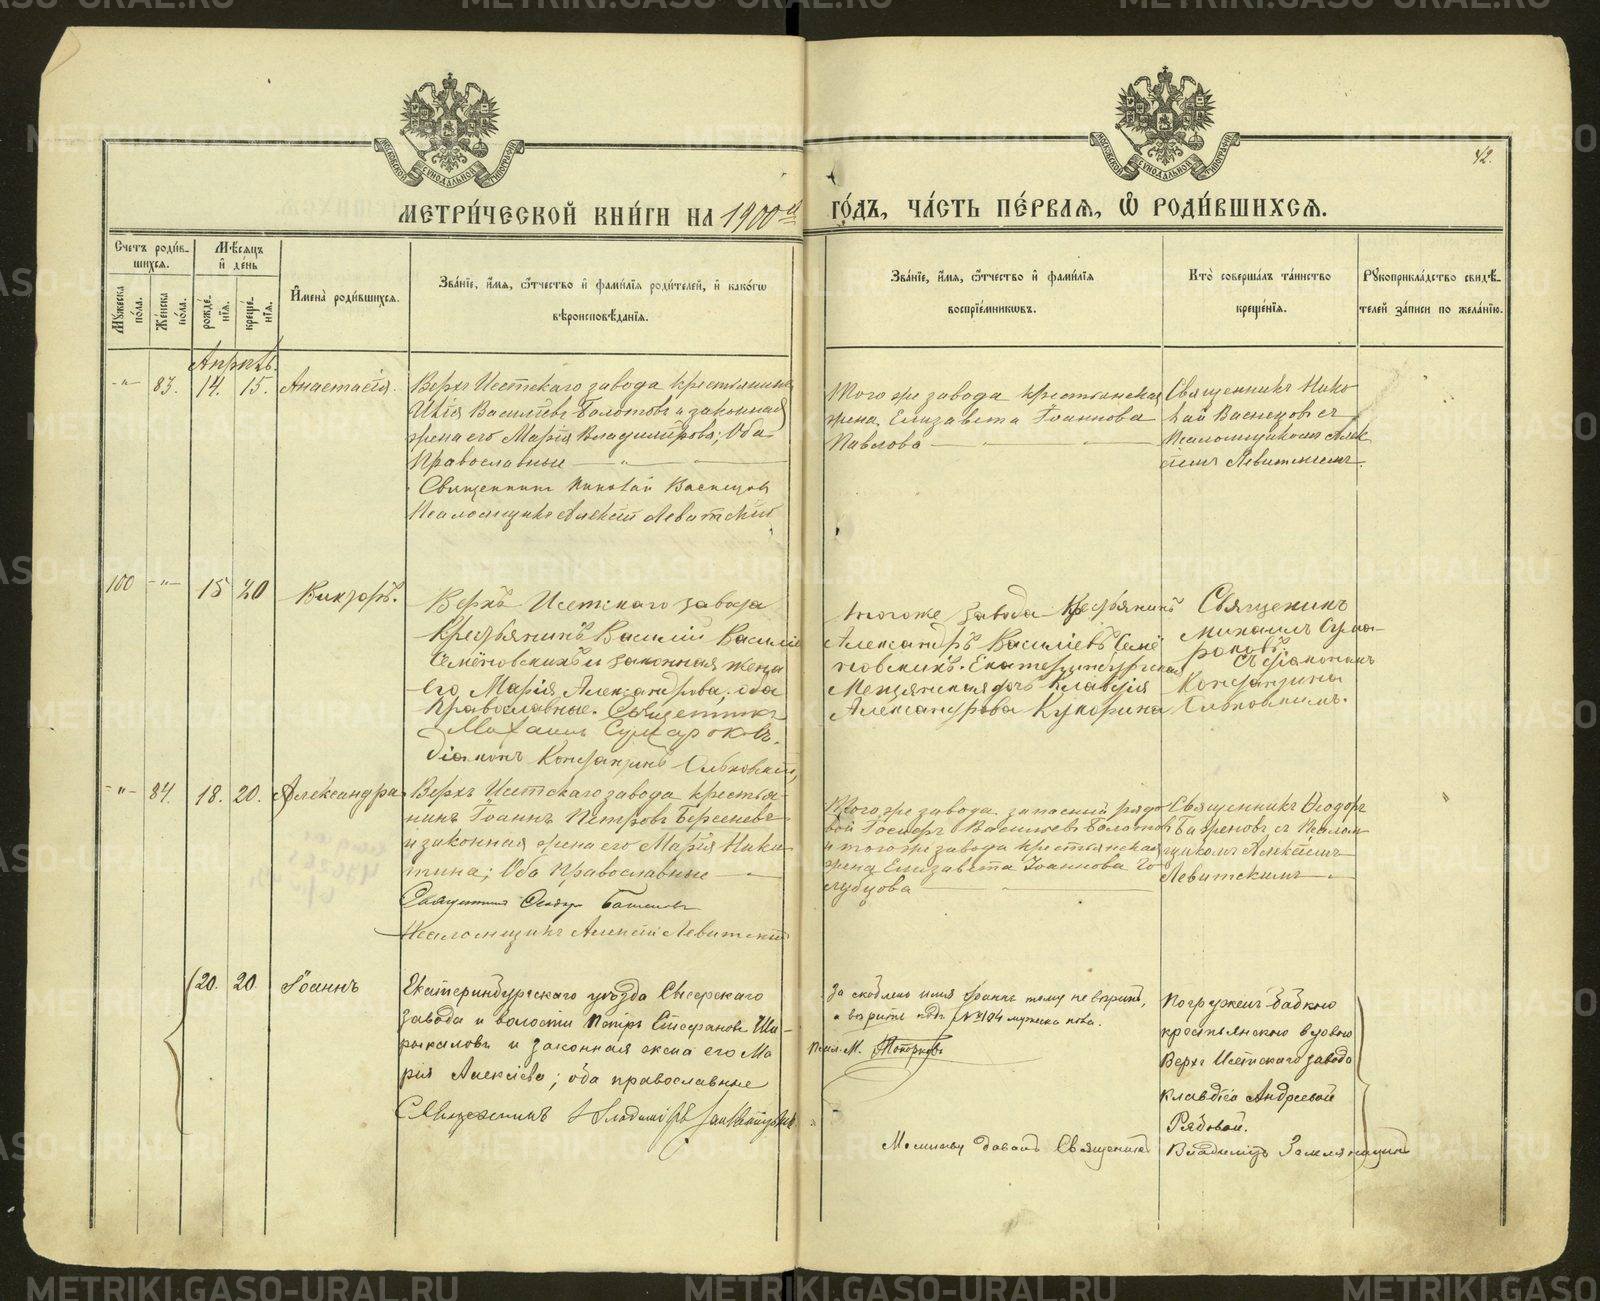 42.
МЕТРИ́ЧЕСКОЙ КНИ́ГИ НА 1900й ГО́ДЪ, ЧА́СТЬ ПЕ́РВАЯ, Ѡ҆ РОДИ́ВШИХСЯ.
Счетъ роди́в-
шихся.
Му́жеска по́ла.
Же́нска по́ла.
Мѣ́сяцъ
и҆ де́нь
рожде́-
нїя.
креще́-
нїя.
И҆мена̀ роди́вшихся.
Зва́нїе, и҆́мя, ѻ҆́тчество и҆ фами́лїя роди́телей, и҆ како́гѡ
вѣроисповѣ́данїя.
Зва́нїе, и҆́мя, ѻ҆́тчество и҆ фами́лїя
воспрїе́мникѡвъ.
Кто̀ соверша́лъ та́инство
креще́нїя.
Рꙋкоприкла́дство свидѣ́-
телей за́писи по жела́нїю.
Апрѣль
-"- 83. 14. 15. Анастасія.
Верхъ Исетскаго завода крестьянинъ
Илія Васильевъ Болотовъ и законная
жена его Марія Владимірова; Оба
Православные
Священникъ Николай Васнецовъ
Псаломщикъ Алексій Левитскій
Того же завода крестьянская
жена Елизавета Іоаннова
Павлова
Священникъ Нико-
лай Васнецовъ съ
Псаломщикомъ Алек-
сіемъ Левитскимъ.
100 -"- 15 20 Викторъ.
Верхъ Исетскаго завода
Крестьянинъ Василій Василіевъ
Семёновскихъ и законная жена
его Марія Александрова. оба
православные. Священникъ
Михаилъ Сумароковъ.
діаконъ Константинъ
тогоже завода крестьянинъ
Александръ Василіевъ Семё-
новскихъ. Екатеринбургская
Мещанская дочь Клавдія
Александрова Кукорина
Священникъ
Михаилъ Сума-
роковъ
съ діакономъ
Константиномъ
-"- 84. 18. 20. Александра
Верхъ Исетскаго завода крестья-
нинъ Іоаннъ Петровъ Берсеневъ
и законная жена его Марія Ники-
тина; Оба Православные
Священникъ Ѳеодоръ
Псаломщикъ Алексій Левитскій
Того же завода запасный рядо-
вой Іосифъ Васильевъ Болотовъ
и того же завода крестьянская
жена Елизавета Іоаннова Го-
лубцова
Священникъ Ѳеодоръ
съ Псалом-
щикомъ Алексіемъ
Левитскимъ
20. 20 Іоаннъ
Екатеринбургскаго уѣзда Сысертскаго
завода и волости Петръ Стефановъ Ши-
рыкаловъ и законная жена его Ма-
рія Алексіева; оба православные
Священникъ Владиміръ Земляницынъ
За скоблено имя Іоаннъ тому не вѣрить,
а вѣрить подъ № 104 мужеска пола.
Псал. М. Топорковъ
Погруженъ бабкою
крестьянскою вдовою
Верхъ Исетскаго завода
Клавдіею Андреевой
Рядовой.
Молитву давалъ Священникъ Владиміръ Земляницынъ
METRIKI.GASO-URAL.RU